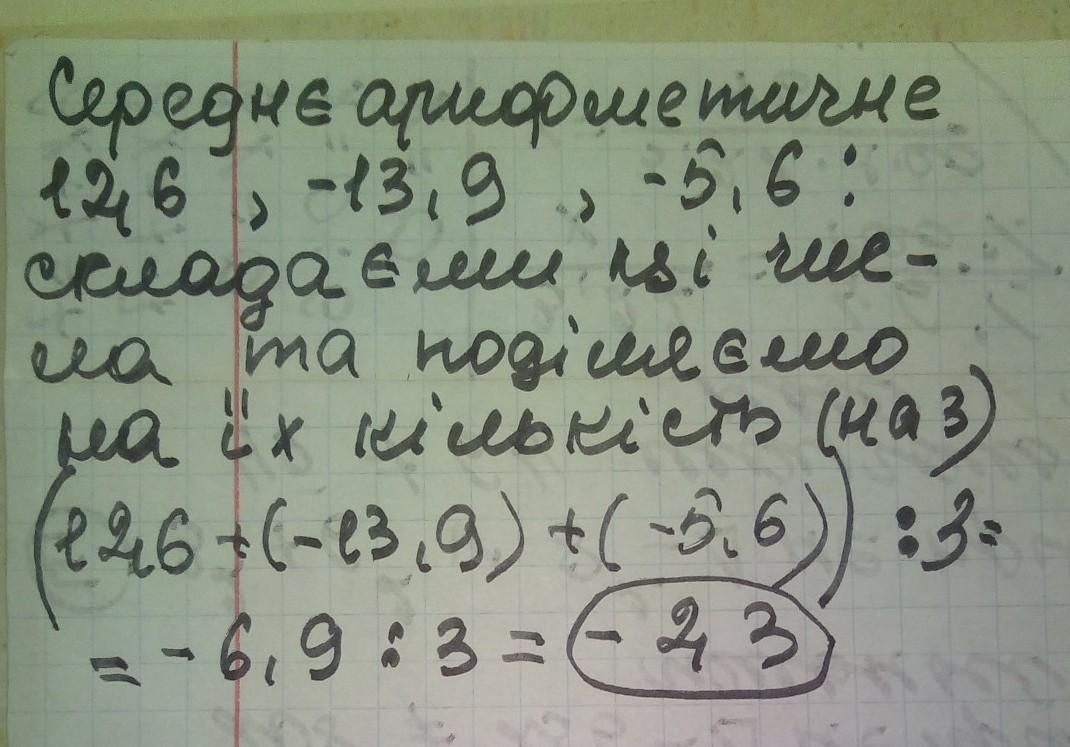 Середнє арифметичне
12,6 , -13,9 , -5,6 :
складаєми ці чис-
ла та поділяємо
на їх кількість (на 3)
(12,6 + (-13,9) + (-5,6)) : 3 =
= -6,9 : 3 = -2,3